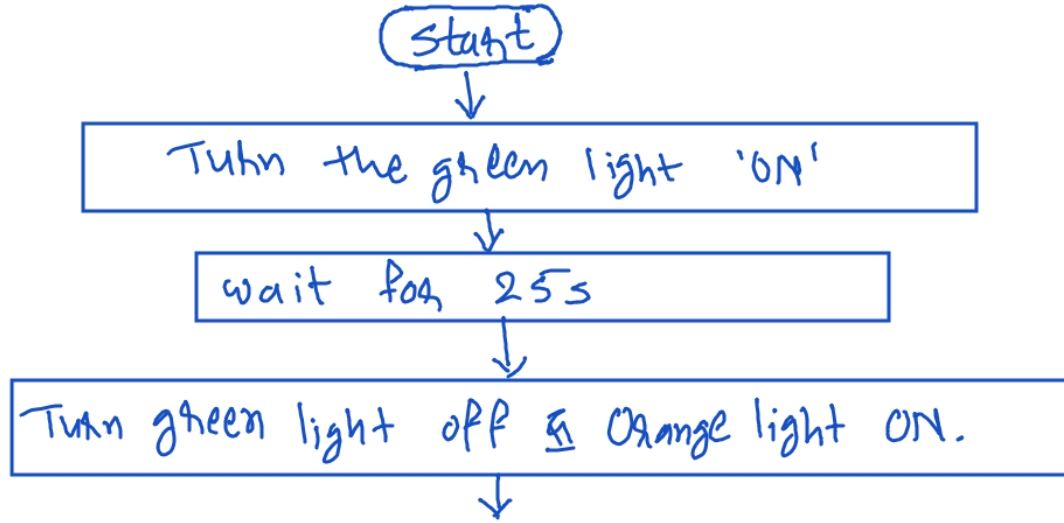 Start
Turn the green light 'ON'
wait for 25s
Turn green light off & Orange light ON.